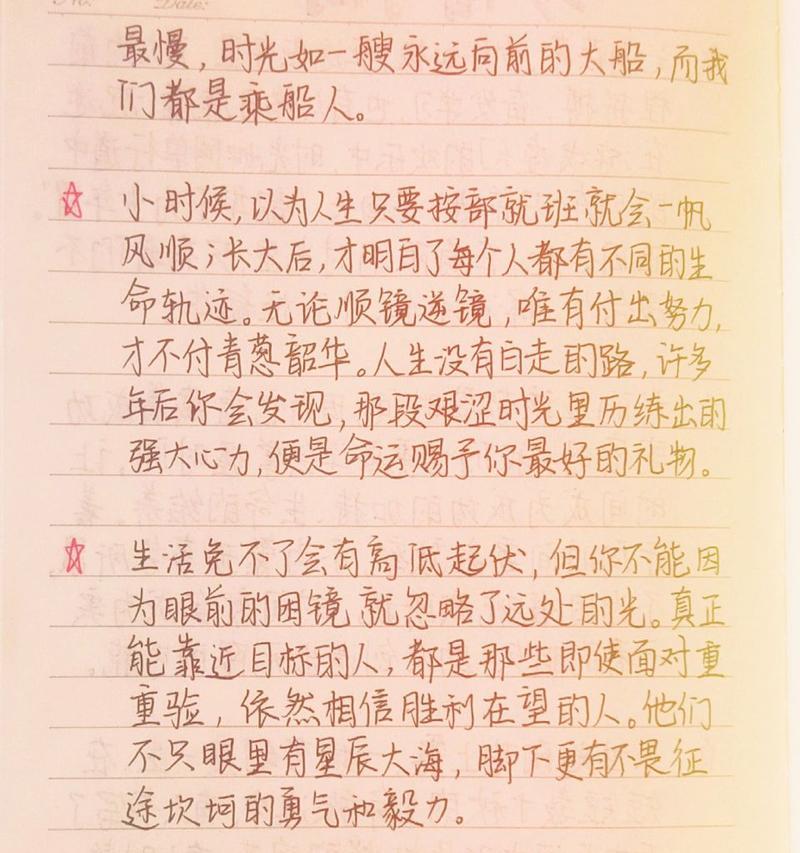 No. Date:
最慢，时光如一艘永远向前的大船，而我
们都是乘船人。
☆ 小时候，以为人生只要按部就班就会一帆
风顺；长大后，才明白了每个人都有不同的生
命轨迹。无论顺镜逆镜，唯有付出努力，
才不付青葱韶华。人生没有白走的路，许多
年后你会发现，那段艰涩时光里历练出的
强大心力，便是命运赐予你最好的礼物。
☆ 生活免不了会有高低起伏，但你不能因
为眼前的困镜就忽略了远处的光。真正
能靠近目标的人，都是那些即使面对重
重验，依然相信胜利在望的人。他们
不只眼里有星辰大海，脚下更有不畏征
途坎坷的勇气和毅力。